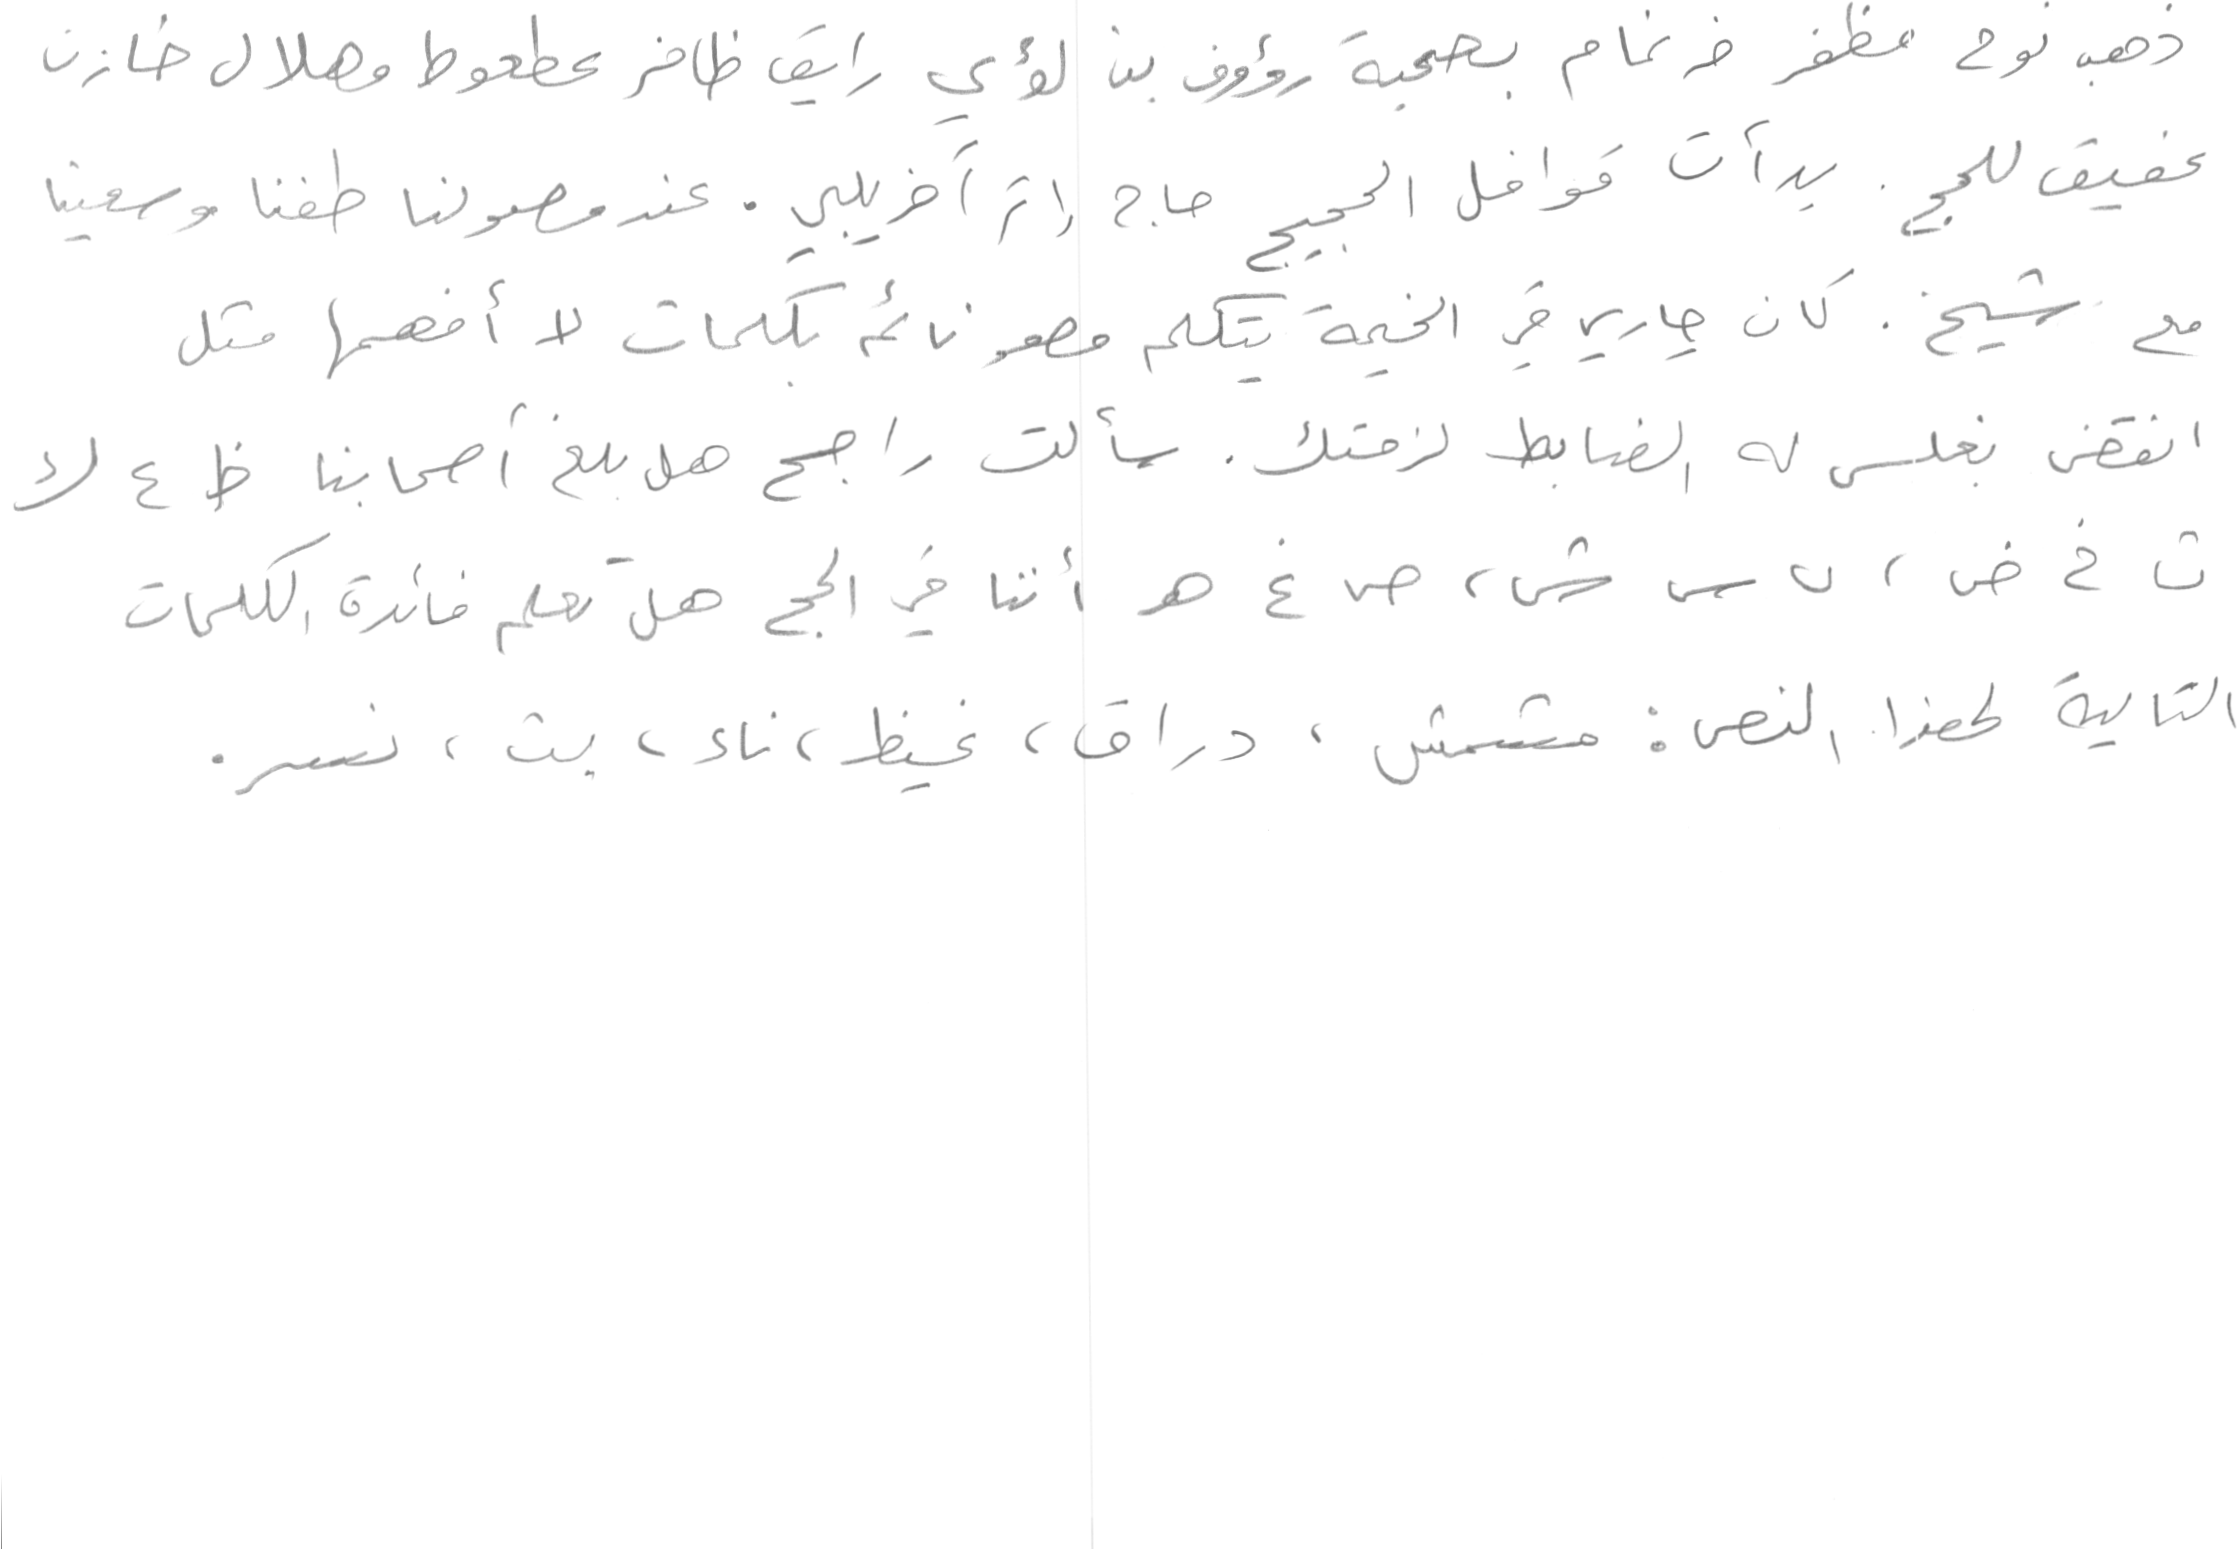 ذهب نوح مظفر ضرغام بصحبة رؤوف بن لؤي رايق ظافر عطعوط وهلال خازن
عفيف للحج . بدأت قوافل الحجيج حاج إثر آخر يلبي . عند وصولنا طفنا وسعينا
مع شيخ . كان جاري في الخيمة يتكلم وهو نائم بكلمات لا أفهمها مثل
انقض نغلس له الضابط لزمتك . سألت راجح هل بلغ أصحابنا ظ ع لا
ث خ ض ، ل س ش ، ص غ هـ أننا في الحج هل تعلم فائدة الكلمات
التالية لهذا النص : مشمش ، دراق ، غيظ ، ناي ، بث ، نسر .